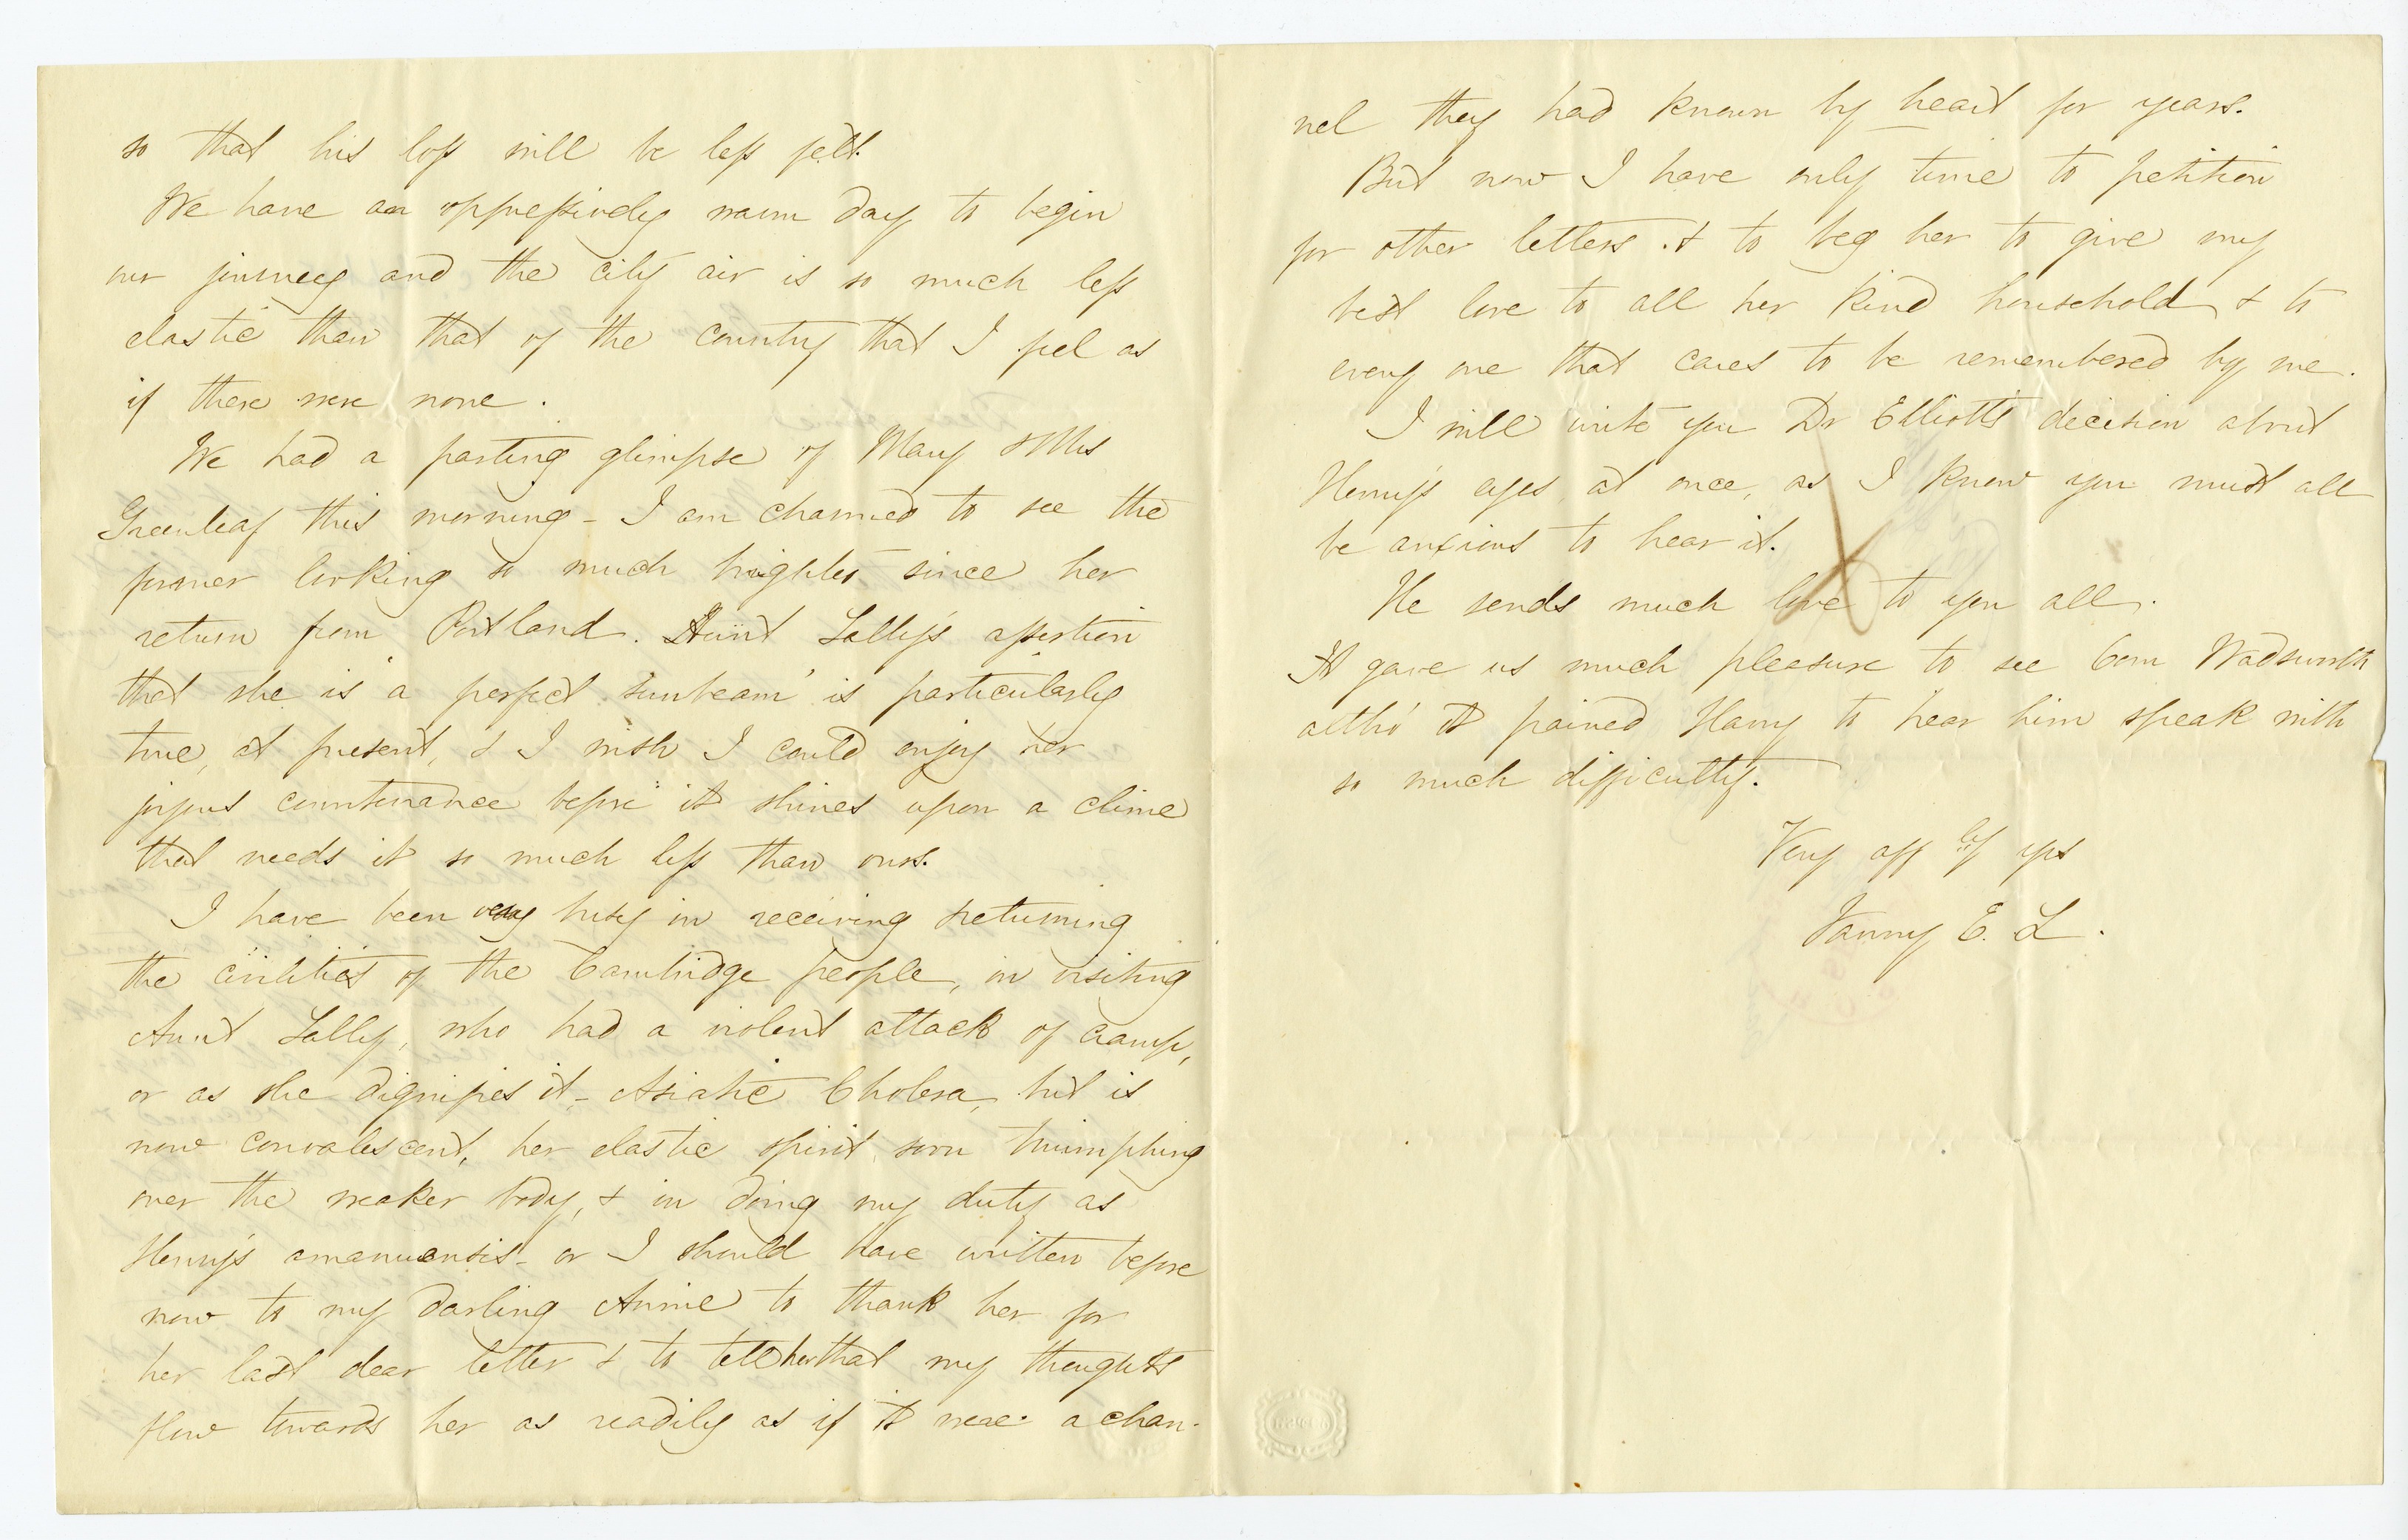 so that his loss will be less felt.
We have an oppressively warm day to begin
our journey and the city air is so much less
elastic than that of the country that I feel as
if there were none.
We had a parting glimpse of Mary & Mrs
Greenleaf this morning – I am charmed to see the
former looking so much brighter since her
return from Portland. Aunt Sally's assertion
that she is 'a perfect sunbeam' is particularly
true, at present, & I wish I could enjoy her
joyous countenance before it shines upon a clime
that needs it so much less than ours.
I have been very busy in receiving & returning
the civilities of the Cambridge people, in visiting
Aunt Sally, who had a violent attack of cramp,
or as she dignifies it – Asiatic Cholera, but is
now convalescent, her elastic spirit soon triumphing
over the weaker body, & in doing my duty as
Henry's amanuensis – or I should have written before
now to my darling Annie to thank her for
her last dear letter & to tell her that my thoughts
flow towards her as readily as if it were a chan-
nel they had known by heart for years.
But now I have only time to petition
for other letters & to beg her to give my
best love to all her kind household & to
every one that cares to be remembered by me.
I will write you Dr Elliott's decision about
Henry's eyes at once, as I know you must all
be anxious to hear it.
He sends much love to you all.
It gave us much pleasure to see Com Wadsworth
altho' it pained Harry to hear him speak with
so much difficulty.
Very aff ly yrs
Fanny E. L.